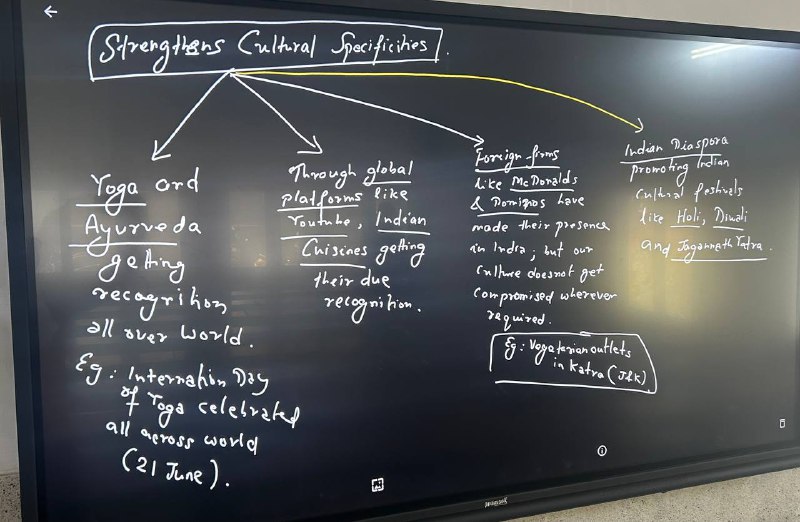 Strengthens Cultural Specificities.
Yoga and
Ayurveda
getting
recognition
all over world.
Eg: Internation Day
of Yoga celebrated
all across world
(21 June).
Through global
platforms like
Youtube, Indian
Cuisines getting
their due
recognition.
Foreign firms
like McDonalds
& Dominos have
made their presence
in India, but our
culture doesnot get
compromised wherever
required.
Eg: Vegetarian outlets
in Katra (J&K)
Indian Diaspora
promoting Indian
Cultural festivals
like Holi, Diwali
and Jagannath Yatra.